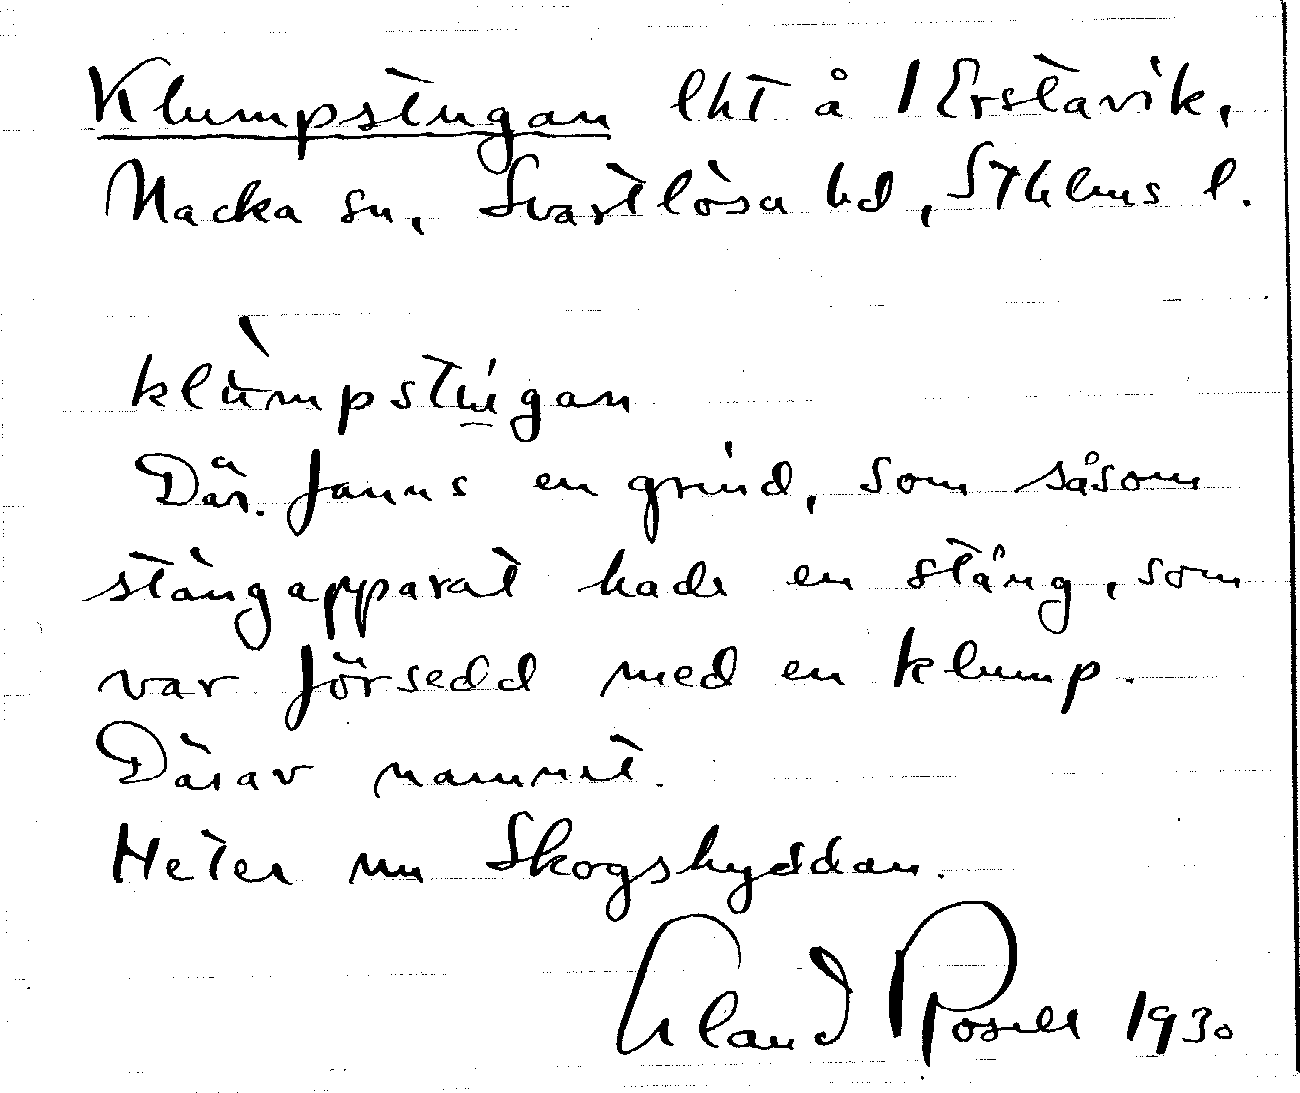 Klumpstugan lht å 1 Erstavik,
Nacka sn, Svartlösa hd, Sthlms l.
klùmpstúgan
Där fanns en grind, som såsom
stängapparat hade en stång, som
var försedd med en klump.
Därav namnet.
Heter nu Skogshyddan.
Erland Rosell 1930